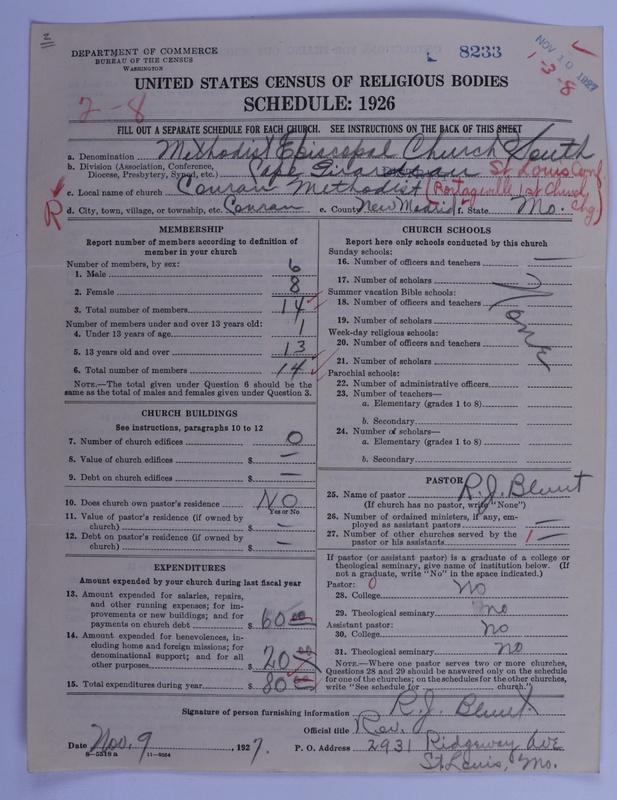 2
DEPARTMENT OF COMMERCE
BUREAU OF THE CENSUS
WASHINGTON
8233
NOV 10 1927
1-3-8
UNITED STATES CENSUS OF RELIGIOUS BODIES
SCHEDULE: 1926
2-8
FILL OUT A SEPARATE SCHEDULE FOR EACH CHURCH. SEE INSTRUCTIONS ON THE BACK OF THIS SHEET
a. Denomination Methodist Episcopal Church South
b. Division (Association, Conference, Diocese, Presbytery, Synod, etc.) Cape Girardeau St. Louis Conf.
c. Local name of church Conran Methodist (Portageville 1st Church, Chg)
R
d. City, town, village, or township, etc. Conran e. County New Madrid f. State Mo.
MEMBERSHIP
Report number of members according to definition of
member in your church
Number of members, by sex:
1. Male 6
2. Female 8
3. Total number of members 14
Number of members under and over 13 years old:
4. Under 13 years of age 1
5. 13 years old and over 13
6. Total number of members 14
NOTE.—The total given under Question 6 should be the
same as the total of males and females given under Question 3.
CHURCH BUILDINGS
See instructions, paragraphs 10 to 12
7. Number of church edifices 0
8. Value of church edifices $ —
9. Debt on church edifices $ —
10. Does church own pastor's residence NO
Yes or No
11. Value of pastor's residence (if owned by
church) $ —
12. Debt on pastor's residence (if owned by
church) $ —
EXPENDITURES
Amount expended by your church during last fiscal year
13. Amount expended for salaries, repairs,
and other running expenses; for im-
provements or new buildings; and for
payments on church debt $ 60 00
14. Amount expended for benevolences, in-
cluding home and foreign missions; for
denominational support; and for all
other purposes $ 20 00
15. Total expenditures during year $ 80 00
CHURCH SCHOOLS
Report here only schools conducted by this church
Sunday schools:
16. Number of officers and teachers —
17. Number of scholars
Summer vacation Bible schools:
18. Number of officers and teachers
None
19. Number of scholars
Week-day religious schools:
20. Number of officers and teachers
21. Number of scholars
Parochial schools:
22. Number of administrative officers
23. Number of teachers—
a. Elementary (grades 1 to 8)
b. Secondary
24. Number of scholars—
a. Elementary (grades 1 to 8)
b. Secondary
PASTOR
25. Name of pastor R. J. Blunt
(If church has no pastor, write "None")
26. Number of ordained ministers, if any, em-
ployed as assistant pastors —
27. Number of other churches served by the
pastor or his assistants 1 —
If pastor (or assistant pastor) is a graduate of a college or
theological seminary, give name of institution below. (If
not a graduate, write "No" in the space indicated.)
Pastor: 0
28. College No
29. Theological seminary no
Assistant pastor:
30. College no
31. Theological seminary no
NOTE.—Where one pastor serves two or more churches,
Questions 28 and 29 should be answered only on the schedule
for one of the churches; on the schedules for the other churches,
write "See schedule for church."
Signature of person furnishing information R. J. Blunt
Official title Rev.
Date Nov. 9, 1927. P. O. Address 2931 Ridgeway Ave
8-5518 a 11-9304
St. Louis, Mo.